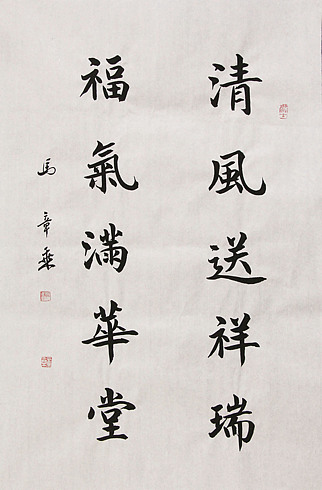 清風送祥瑞
福氣滿華堂
馬章乘